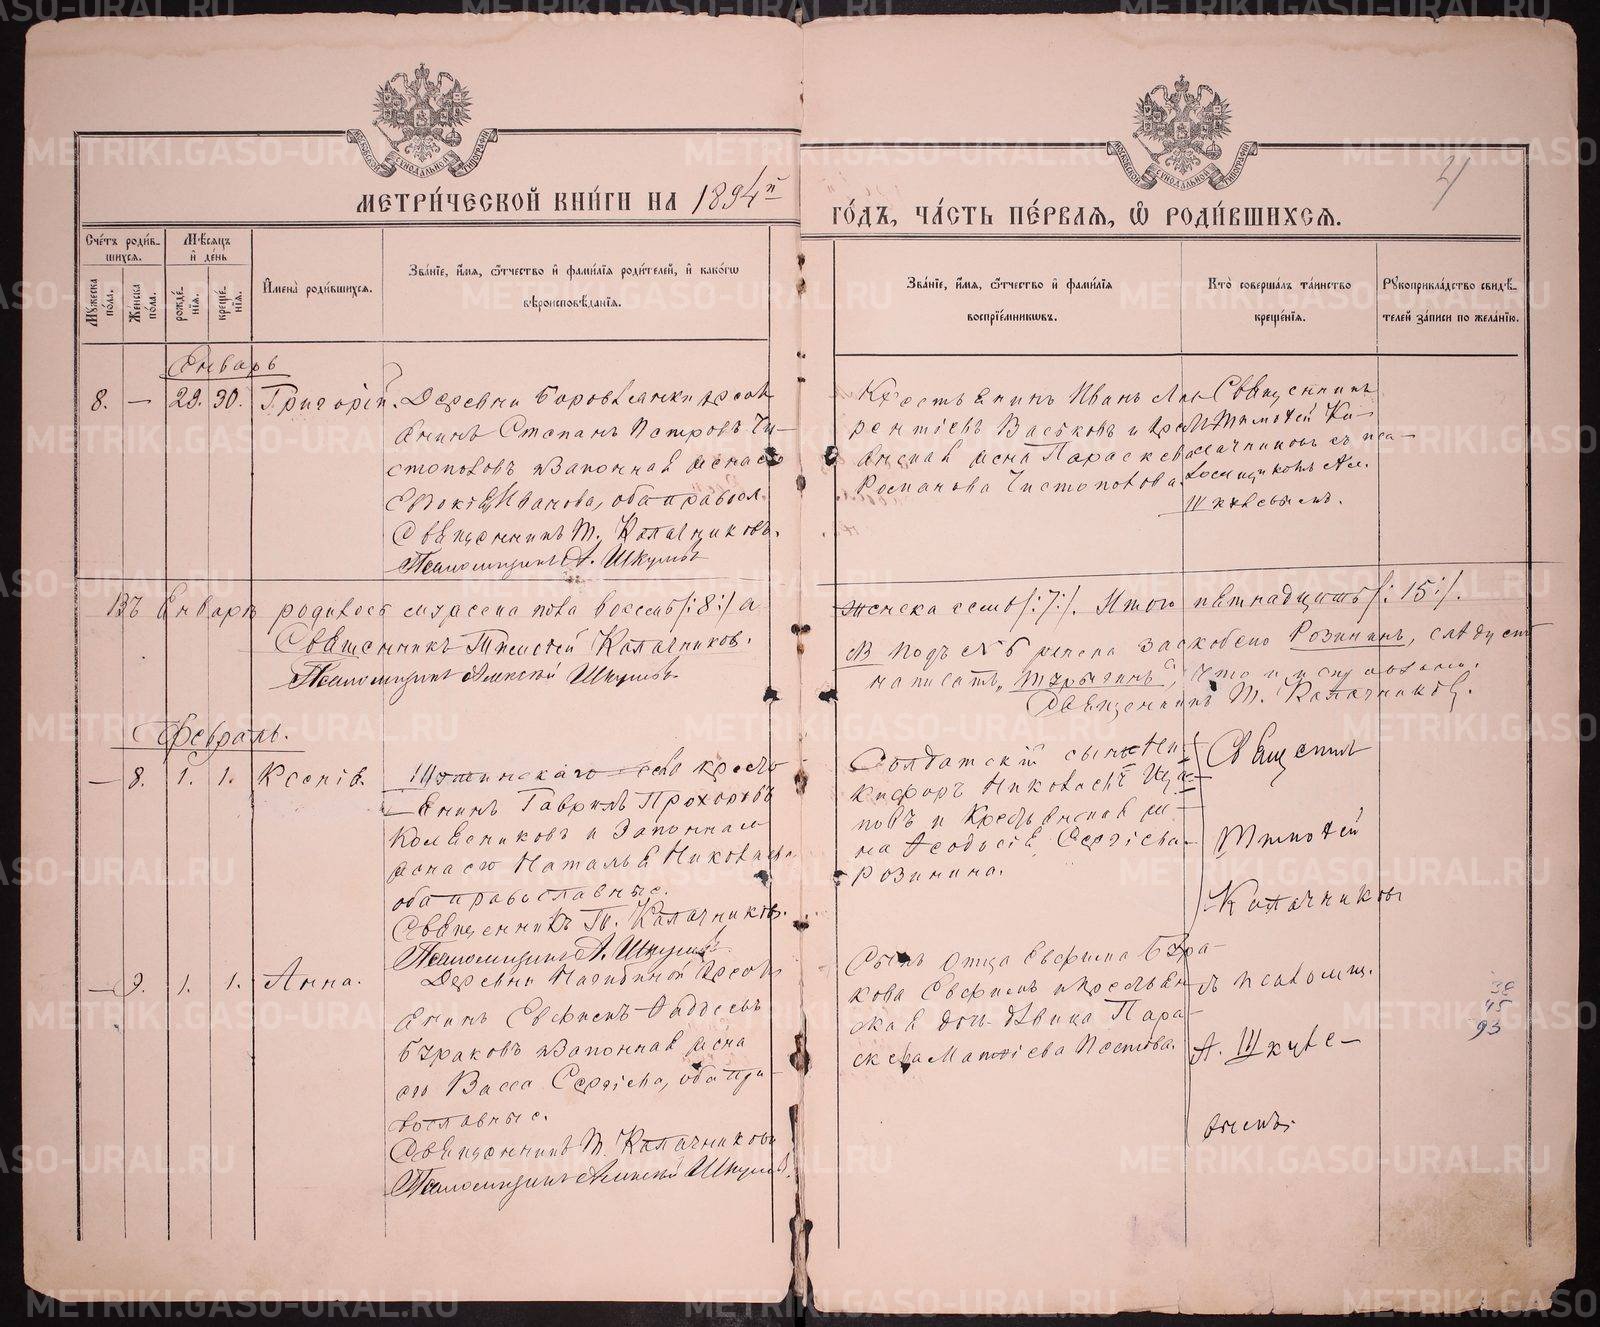 МЕТРИ́ЧЕСКОЙ КНИ́ГИ НА 1894й
ГО́ДЪ, ЧА́СТЬ ПЕ́РВАЯ, Ѡ РОДИ́ВШИХСЯ.
21
Сче́тъ роди́в-
шихся.
Мꙋжеска по́ла.
Же́нска по́ла.
Мѣ́сяцъ и де́нь
рожде́нїя.
креще́нїя.
И҆мена̀ роди́вшихся.
Зва́нїе, и҆́мя, ѻ҆́тчество и҆ фами́лїя роди́телей, и҆ како́гѡ
вѣроисповѣ́данїя.
Зва́нїе, и҆́мя, ѻ҆́тчество и҆ фами́лїя
воспрїе́мникѡвъ.
Кто̀ соверша́лъ та́инство
креще́нїя.
Рꙋкоприкла́дство свидѣ́-
телей за́писи по жела́нїю.
Январь
8. — 29. 30. Григорій.
Деревни Боровлянки крест
янинъ Стефанъ Петровъ Чи-
стопоповъ и законная жена
Евдокія Иванова, оба правосл.
Священникъ Т. Калачниковъ.
Псаломщикъ А. Шкулевъ
Крестьянинъ Иванъ
Васьковъ и крест
янская жена Параскева
Романова Чистопопова.
Священникъ
Тимофей Ка-
лачниковъ съ пса-
ломщикомъ Ал.
Шкулевымъ.
Въ Январѣ родилось мужеска пола восемь /:8:/ а
женска семь /:7:/. Итого пятнадцать /:15:/.
Священникъ Тимофей Калачниковъ.
Псаломщикъ Алексѣй Шкулевъ
Подъ № 6 Розининъ, слѣдуетъ
написать
Священникъ Т. Калачниковъ.
Февраль.
— 8. 1. 1. Ксенія.
села кресть
янинъ Гавріилъ Прохоровъ
Колесниковъ и законная
жена его Наталья Николаева
оба православные.
Священникъ Т. Калачниковъ.
Псаломщикъ А. Шкулевъ
Солдатскій сынъ Ни-
кифоръ Николаевъ
повъ и крестьянская же-
на Ѳеодосія Сергіева
Розинина.
Священникъ
Тимофей
Калачниковъ
— 9. 1. 1. Анна.
Деревни крест
янинъ Евфимъ Ѳаддеевъ
Бураковъ и законная жена
его Васса Сергіева, оба пра-
вославные.
Священникъ Т. Калачниковъ
Псаломщикъ Алексѣй Шкулевъ.
Сынъ отца Евфима Бура-
кова Евфимъ и крестьян
ская дочь дѣвица Пара-
скева Матѳіева Постова.
съ псаломщ.
А. Шкуле-
вымъ.
38
45
93
METRIKI.GASO-URAL.RU